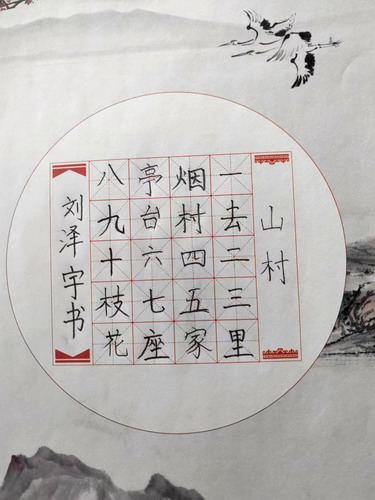 山村
一去二三里
烟村四五家
亭台六七座
八九十枝花
刘泽宇书